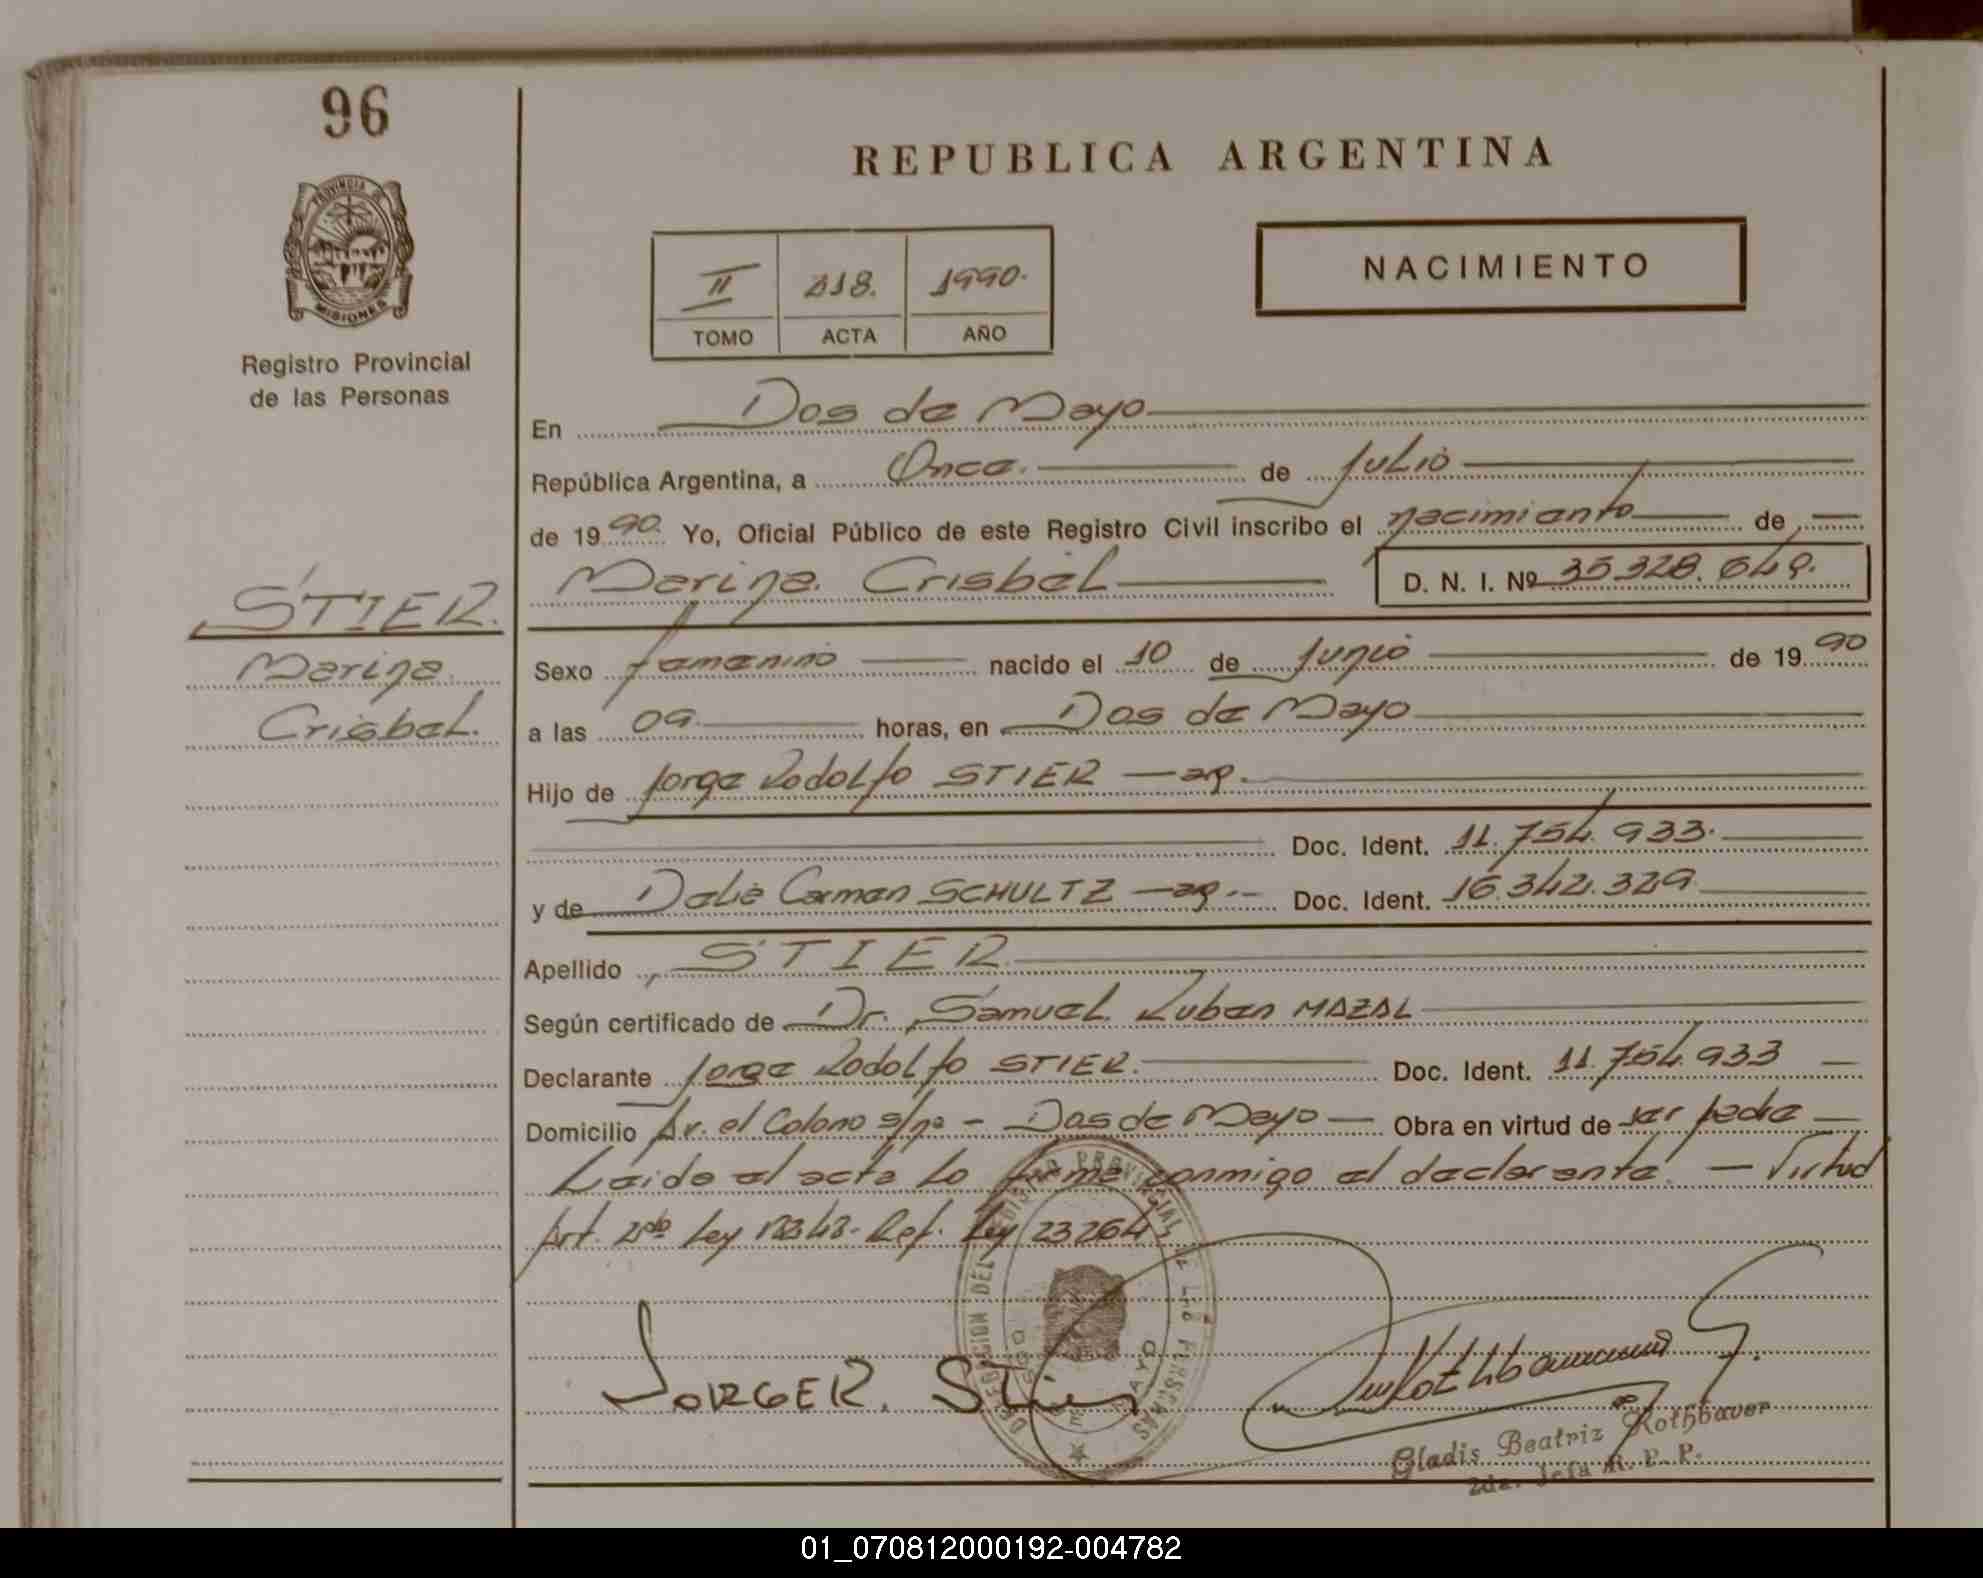 96
REPUBLICA ARGENTINA
PROVINCIA DE
MISIONES
II 218. 1990.
TOMO ACTA AÑO
NACIMIENTO
Registro Provincial
de las Personas
En Dos de Mayo
República Argentina, a Once. de Julio
de 19 90. Yo, Oficial Público de este Registro Civil inscribo el nacimiento de
Marina Crisbel D. N. I. Nº 35.328.649.
STIER.
Marina
Crisbel.
Sexo femenino nacido el 10 de Junio de 19 90
a las 09 horas, en Dos de Mayo
Hijo de Jorge Rodolfo STIER - ar.
Doc. Ident. 11.754.933.
y de Delia Carmen SCHULTZ - ar. - Doc. Ident. 16.342.329
Apellido STIER
Según certificado de Dr. Samuel Ruben MAZAL
Declarante Jorge Rodolfo STIER. Doc. Ident. 11.754.933
Domicilio Av. el Colono s/nº - Dos de Mayo - Obra en virtud de ser padre
Leida el acta la firma conmigo el declarante. - Virtud
Art. 2do Ley Ref. Ley 23264
DELEGACION DEL REGISTRO PROVINCIAL DE LAS PERSONAS
DOS DE MAYO
JORGE R. Stier
Rothbauer
Gladis Beatriz Rothbauer
2da. Jefa R. P. P.
01_070812000192-004782